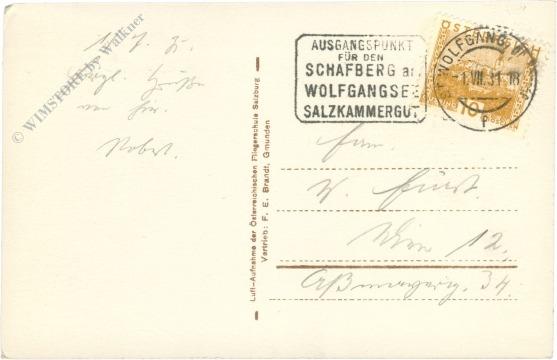 © WIMSTORE by Walkner
1. 7. 31.
Robert.
Luft-Aufnahme der Österreichischen Fliegerschule Salzburg
Vertrieb: F. E. Brandt, Gmunden
AUSGANGSPUNKT
FÜR DEN
SCHAFBERG am
WOLFGANGSEE
SALZKAMMERGUT
ST WOLFGANG
-1.VII.31.18
ÖSTERREICH
10
Fam.
W. Fürst.
Wien 12.
34.